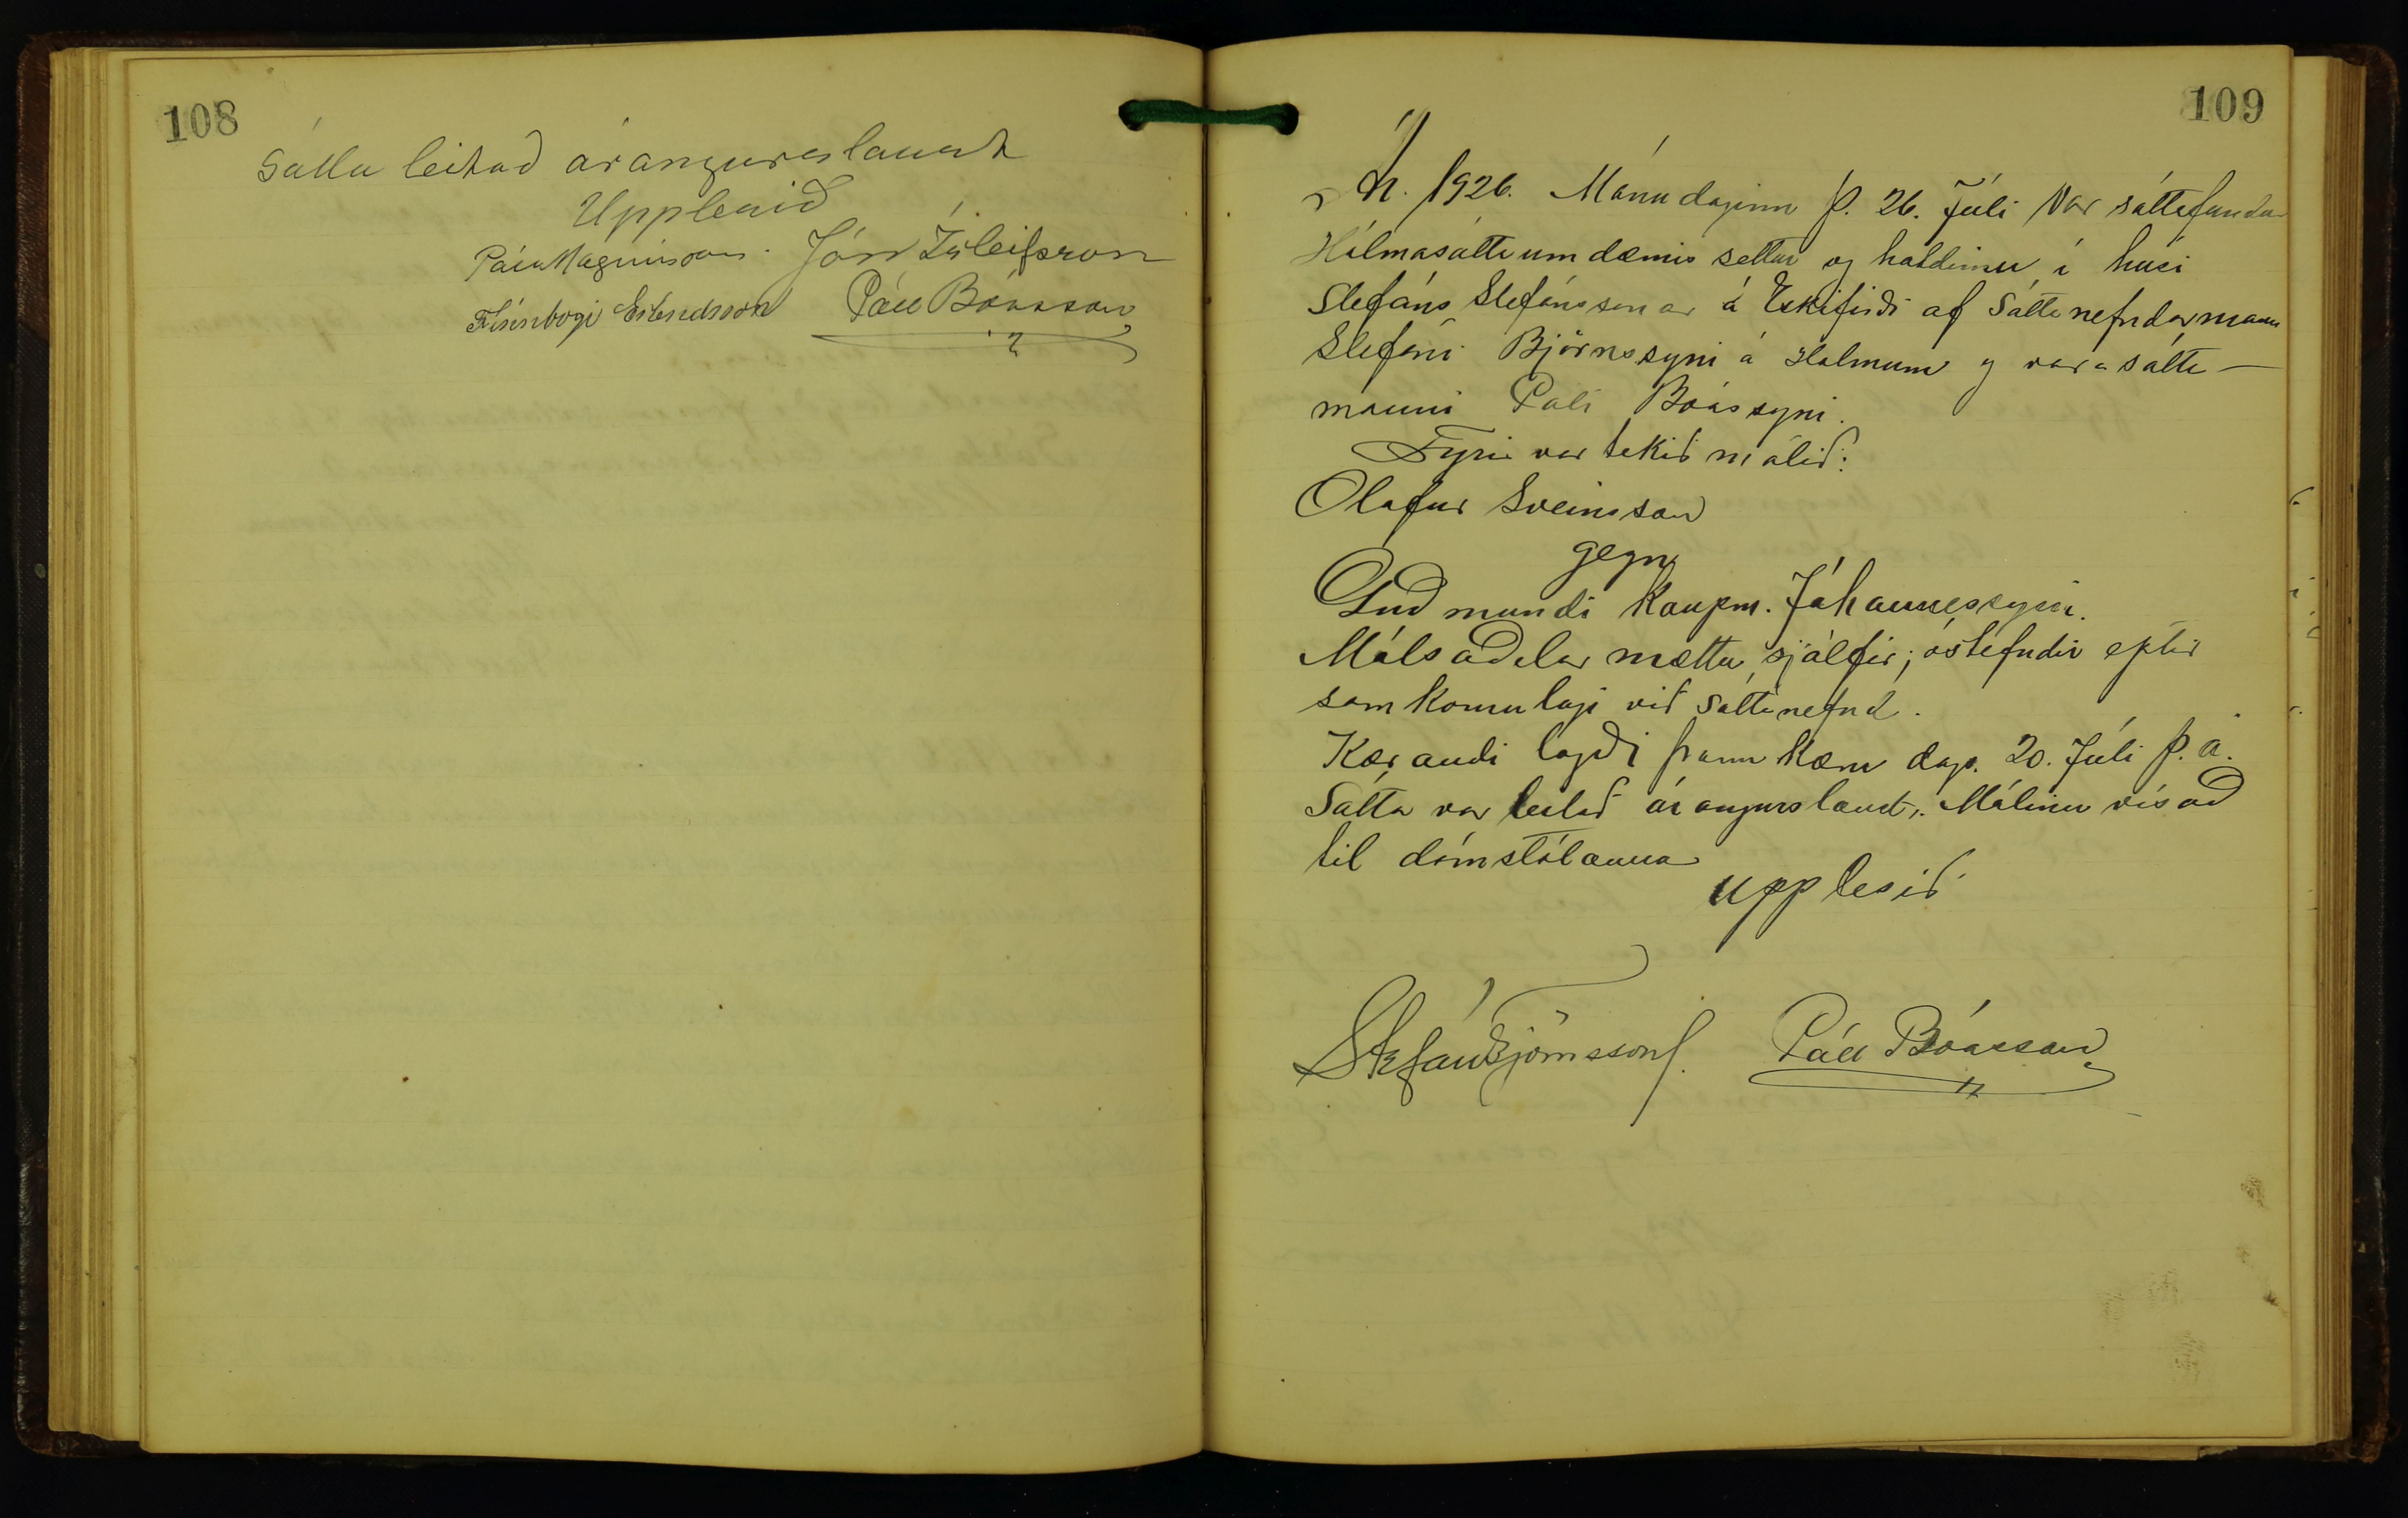 108
Sátta leitað árangurslaust
Upplesið
Páll Magnússon. Jón Ísleifsson
Finnbogi Erlendsson Páll Bóasson
109
Ár. 1926. Mánudaginn þ. 26. Júlí var sáttafundur
Hólmasáttaumdæmis settur og haldinn í húsi
Stefáns Stefánssonar á Eskifirði af Sáttanefndarmanni
Stefáni Björnssyni á Hólmum og varasátta-
manni Páli Bóassyni.
Fyrir var tekið málið:
Olafur Sveinsson
gegn
Guðmundi kaupm. Jóhannessyni.
Málsaðilar mættu sjálfir; óstefndir eptir
samkomulagi við sáttanefnd.
Kærandi lagði fram kæru dags. 20. Júlí þ. á.
Sátta var leitað árangurslaust. Málinu vísað
til dómstólanna
upplesið
Stefán Björnsson. Páll Bóasson